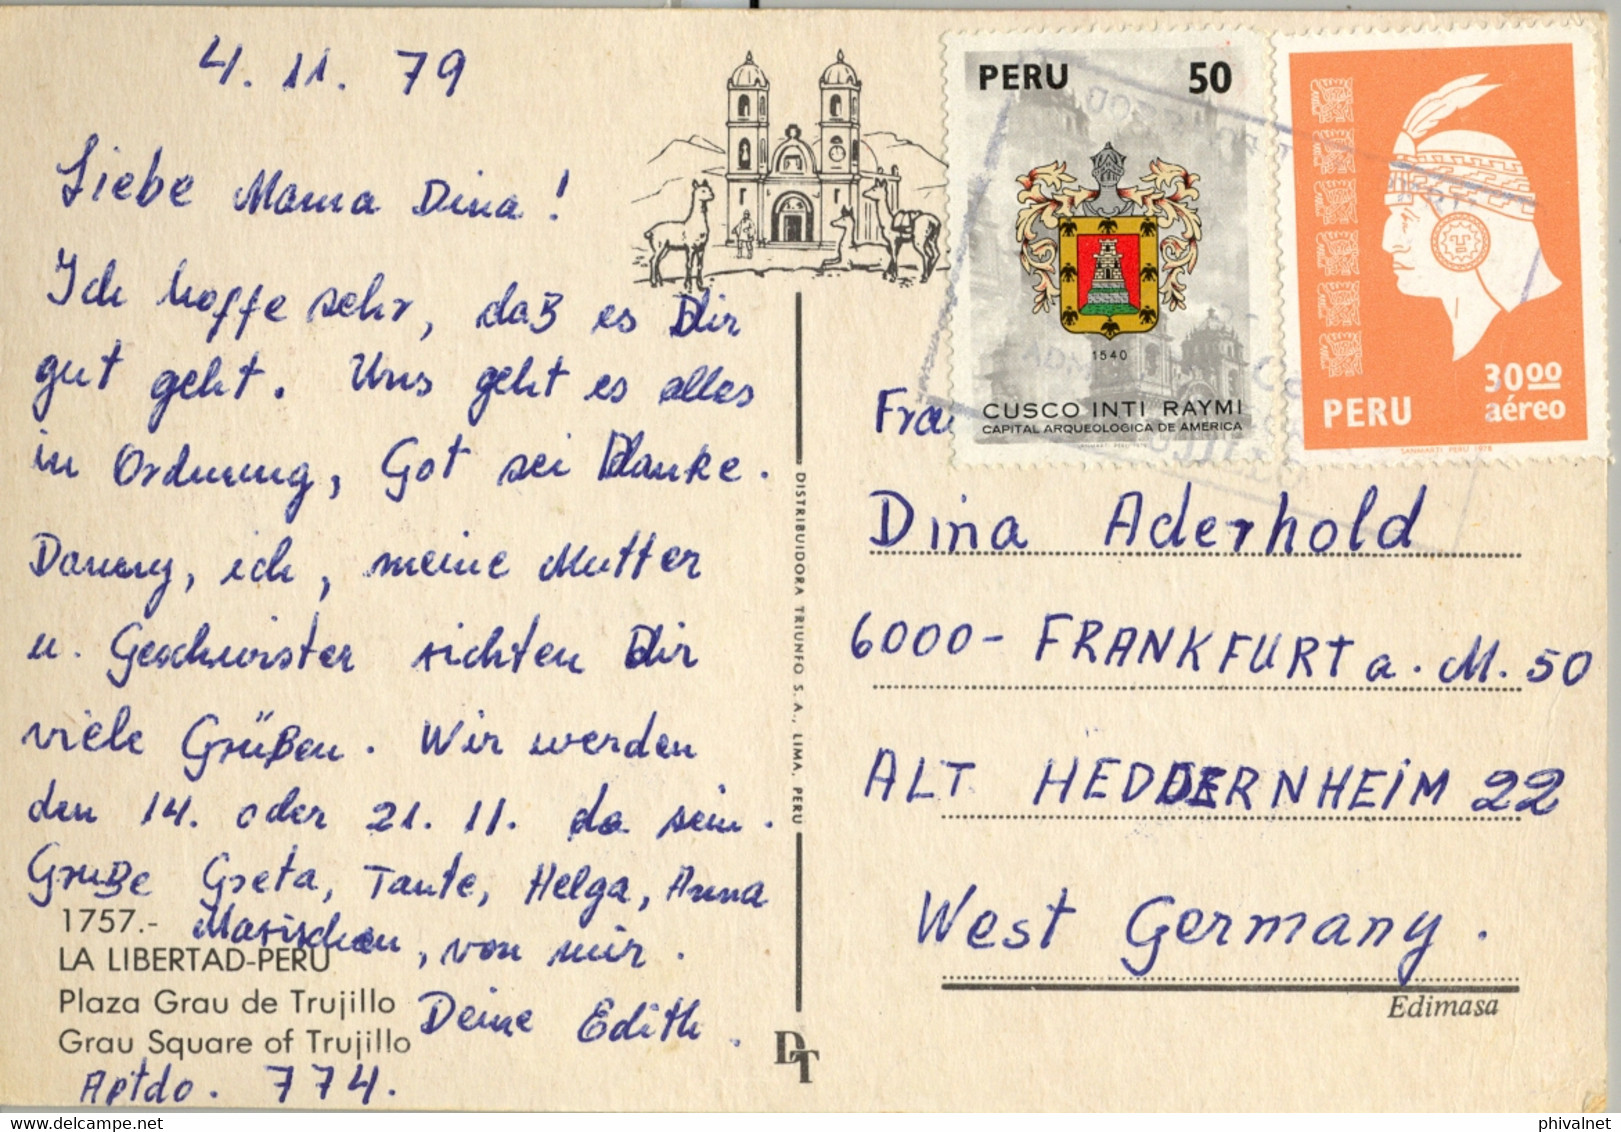 4. 11. 79
Liebe Mama Dina!
Ich hoffe sehr, daß es Dir
gut geht. Uns geht es alles
in Ordnung, Got sei Danke.
Danny, ich, meine Mutter
u. Geschwister richten Dir
viele Grüßen. Wir werden
den 14. oder 21. 11. da sein.
Gruße Greta, Tante, Helga, Anna
Marischen, von mir.
Deine Edith.
Aptdo. 774.
1757.-
LA LIBERTAD-PERU
Plaza Grau de Trujillo
Grau Square of Trujillo
DISTRIBUIDORA TRIUNFO S. A., LIMA, PERU
DT
PERU 50
1540
CUSCO INTI RAYMI
CAPITAL ARQUEOLOGICA DE AMERICA
30.00
aéreo
PERU
SANMARTI PERU 1978
Frau
Dina Aderhold
6000- FRANKFURT a. M. 50
ALT HEDDERNHEIM 22
West Germany.
Edimasa
phivalnet